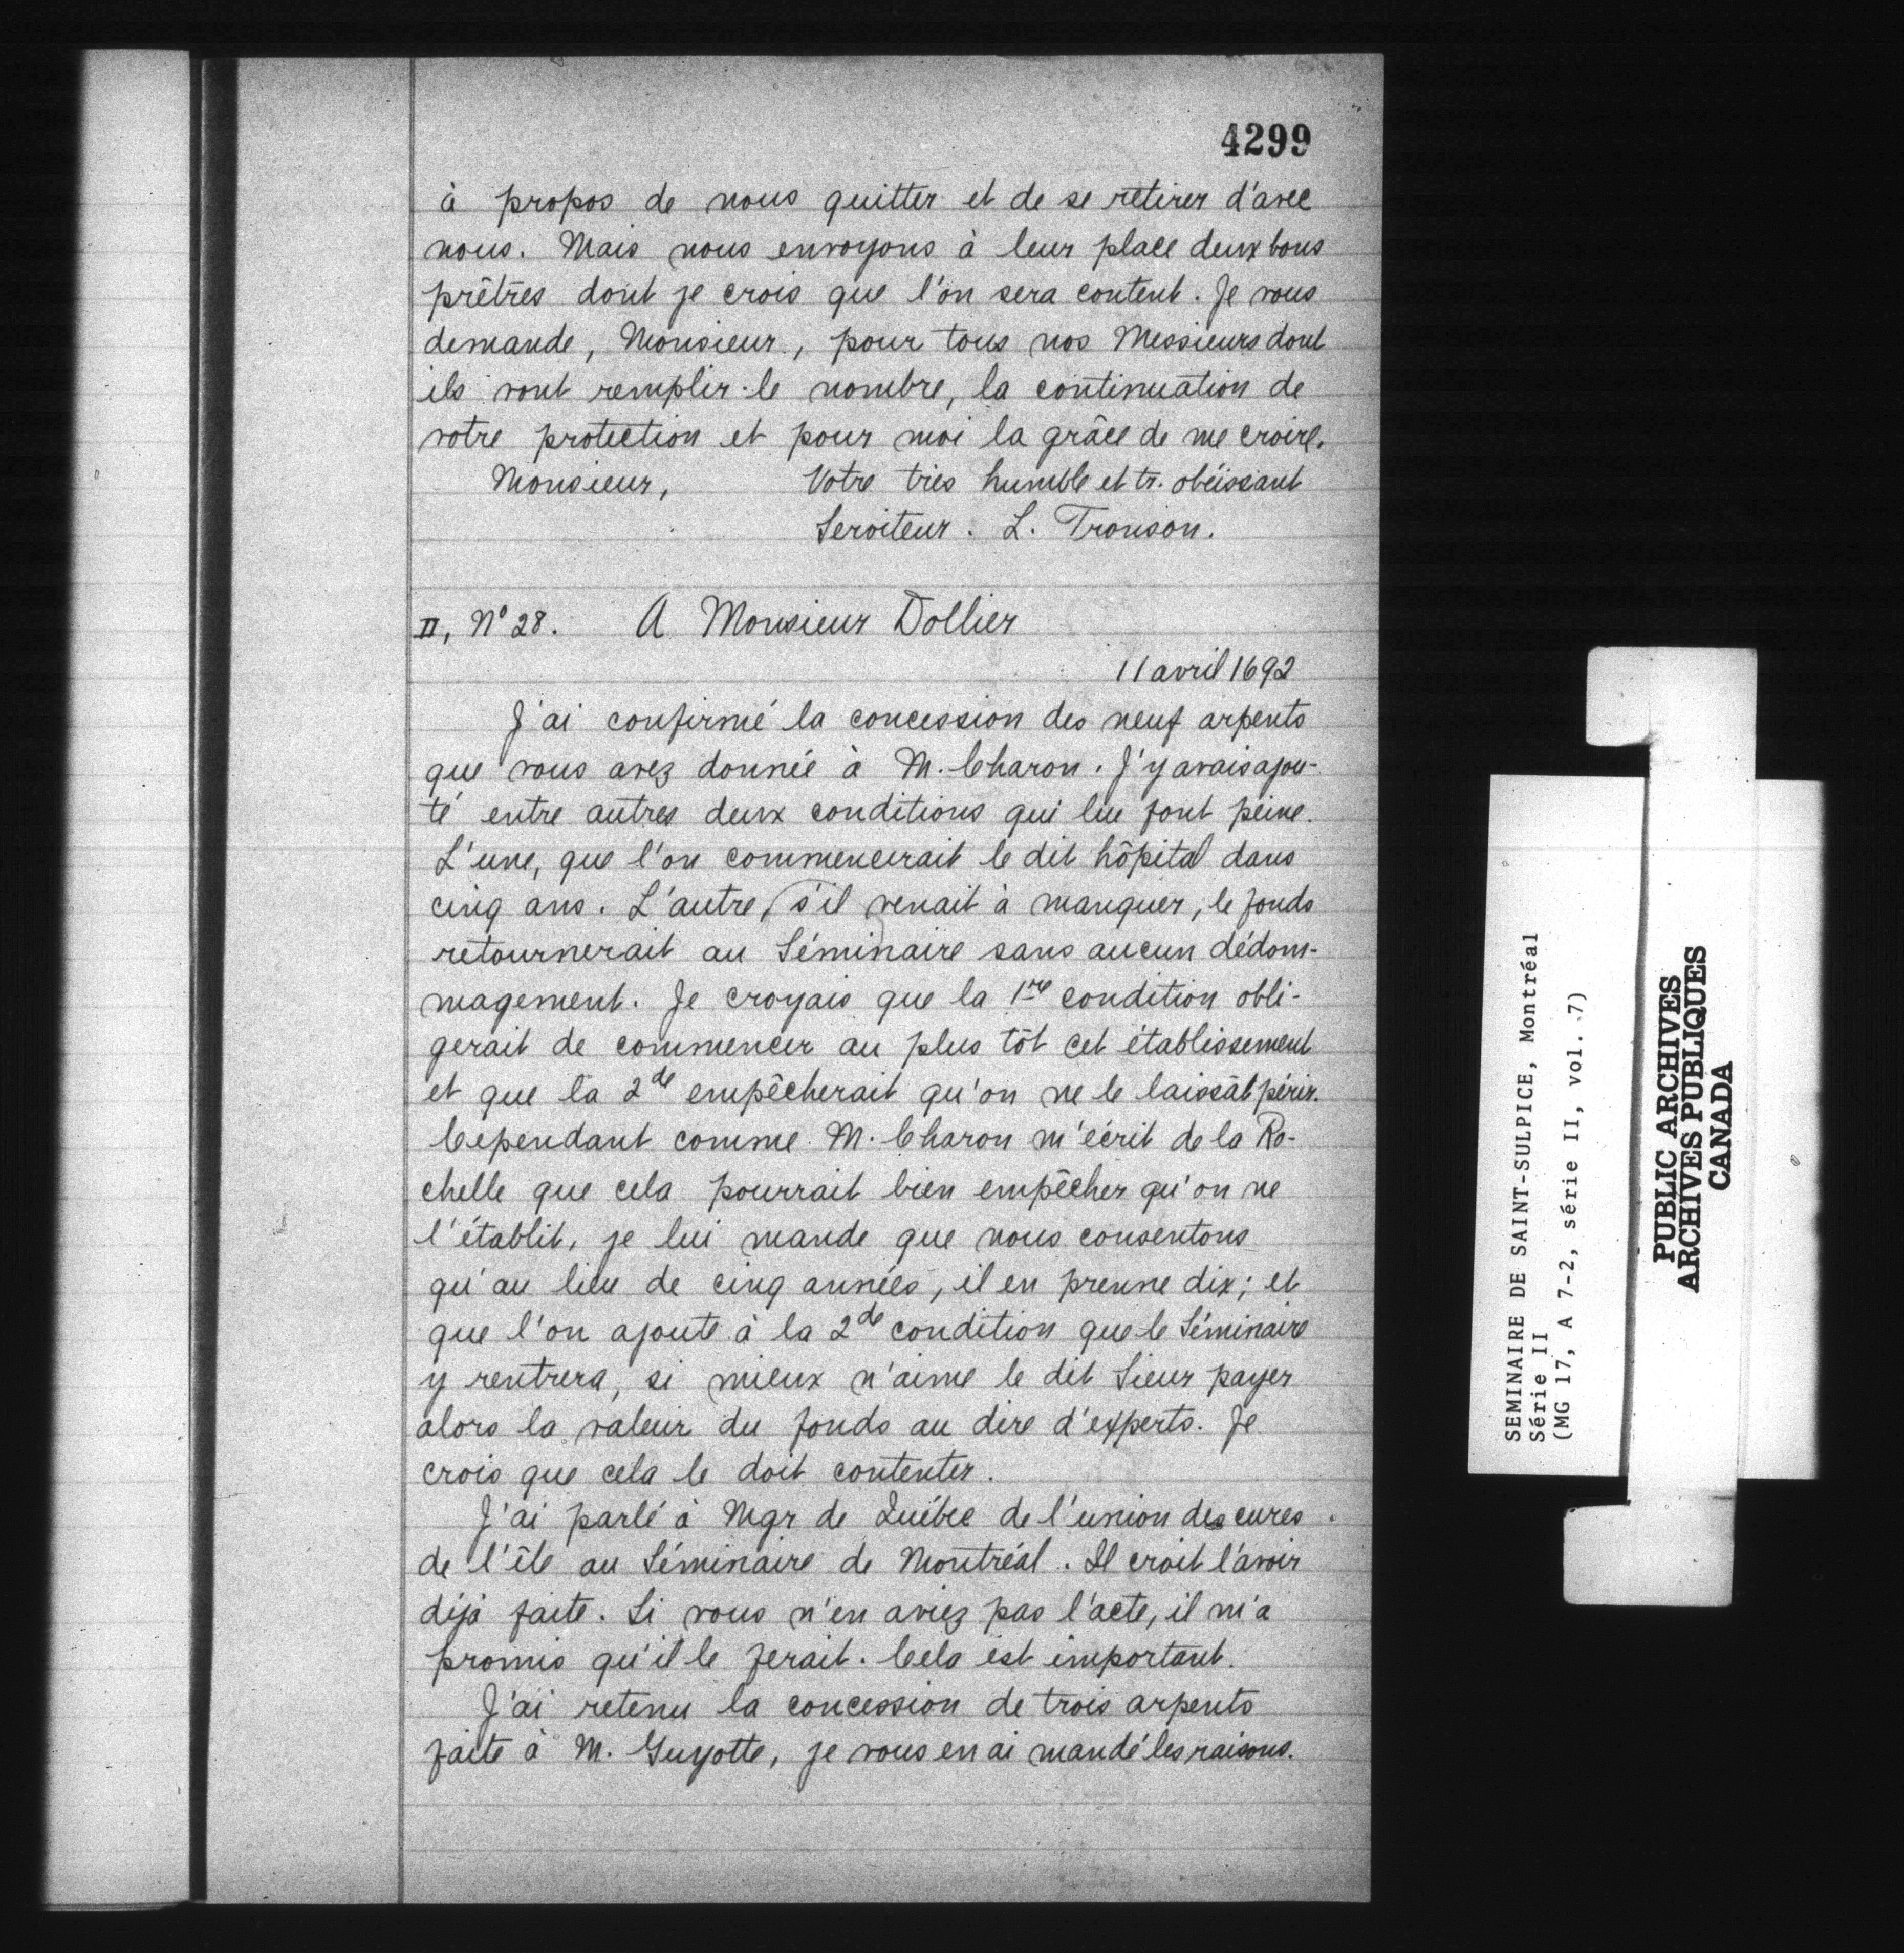 4299
à propos de nous quitter et de se retirer d'avec
nous. Mais nous envoyons à leur place deux bons
prêtres dont je crois que l'on sera content. Je vous
demande, Monsieur, pour tous nos Messieurs dont
ils vont remplir le nombre, la continuation de
votre protection et pour moi la grâce de me croire.
Monsieur, Votre très humble et tr. obéissant
Serviteur. L. Tronson.
II, N° 28. A Monsieur Dollier
11 avril 1692
J'ai confirmé la concession des neuf arpents
que vous avez donnée à M. Charon. J'y avais ajou-
té entre autres deux conditions qui lui font peine.
L'une, que l'on commencerait le dit hôpital dans
cinq ans. L'autre, s'il venait à manquer, le fonds
retournerait au Séminaire sans aucun dédom-
magement. Je croyais que la 1re condition obli-
gerait de commencer au plus tôt cet établissement
et que la 2de empêcherait qu'on ne le laissât périr.
Cependant comme M. Charon m'écrit de la Ro-
chelle que cela pourrait bien empêcher qu'on ne
l'établit, je lui mande que nous consentons
qu'au lieu de cinq années, il en prenne dix; et
que l'on ajoute à la 2de condition que le Séminaire
y rentrera, si mieux n'aime le dit Sieur payer
alors la valeur du fonds au dire d'experts. Je
crois que cela le doit contenter.
J'ai parlé à Mgr de Québec de l'union des cures
de l'île au Séminaire de Montréal. Il croit l'avoir
déjà faite. Si vous n'en aviez pas l'acte, il m'a
promis qu'il le ferait. Cela est important.
J'ai retenu la concession de trois arpents
faite à M. Guyotte, je vous en ai mandé les raisons.
SEMINAIRE DE SAINT-SULPICE, Montréal
Série II
(MG 17, A 7-2, série II, vol. 7)
PUBLIC ARCHIVES
ARCHIVES PUBLIQUES
CANADA